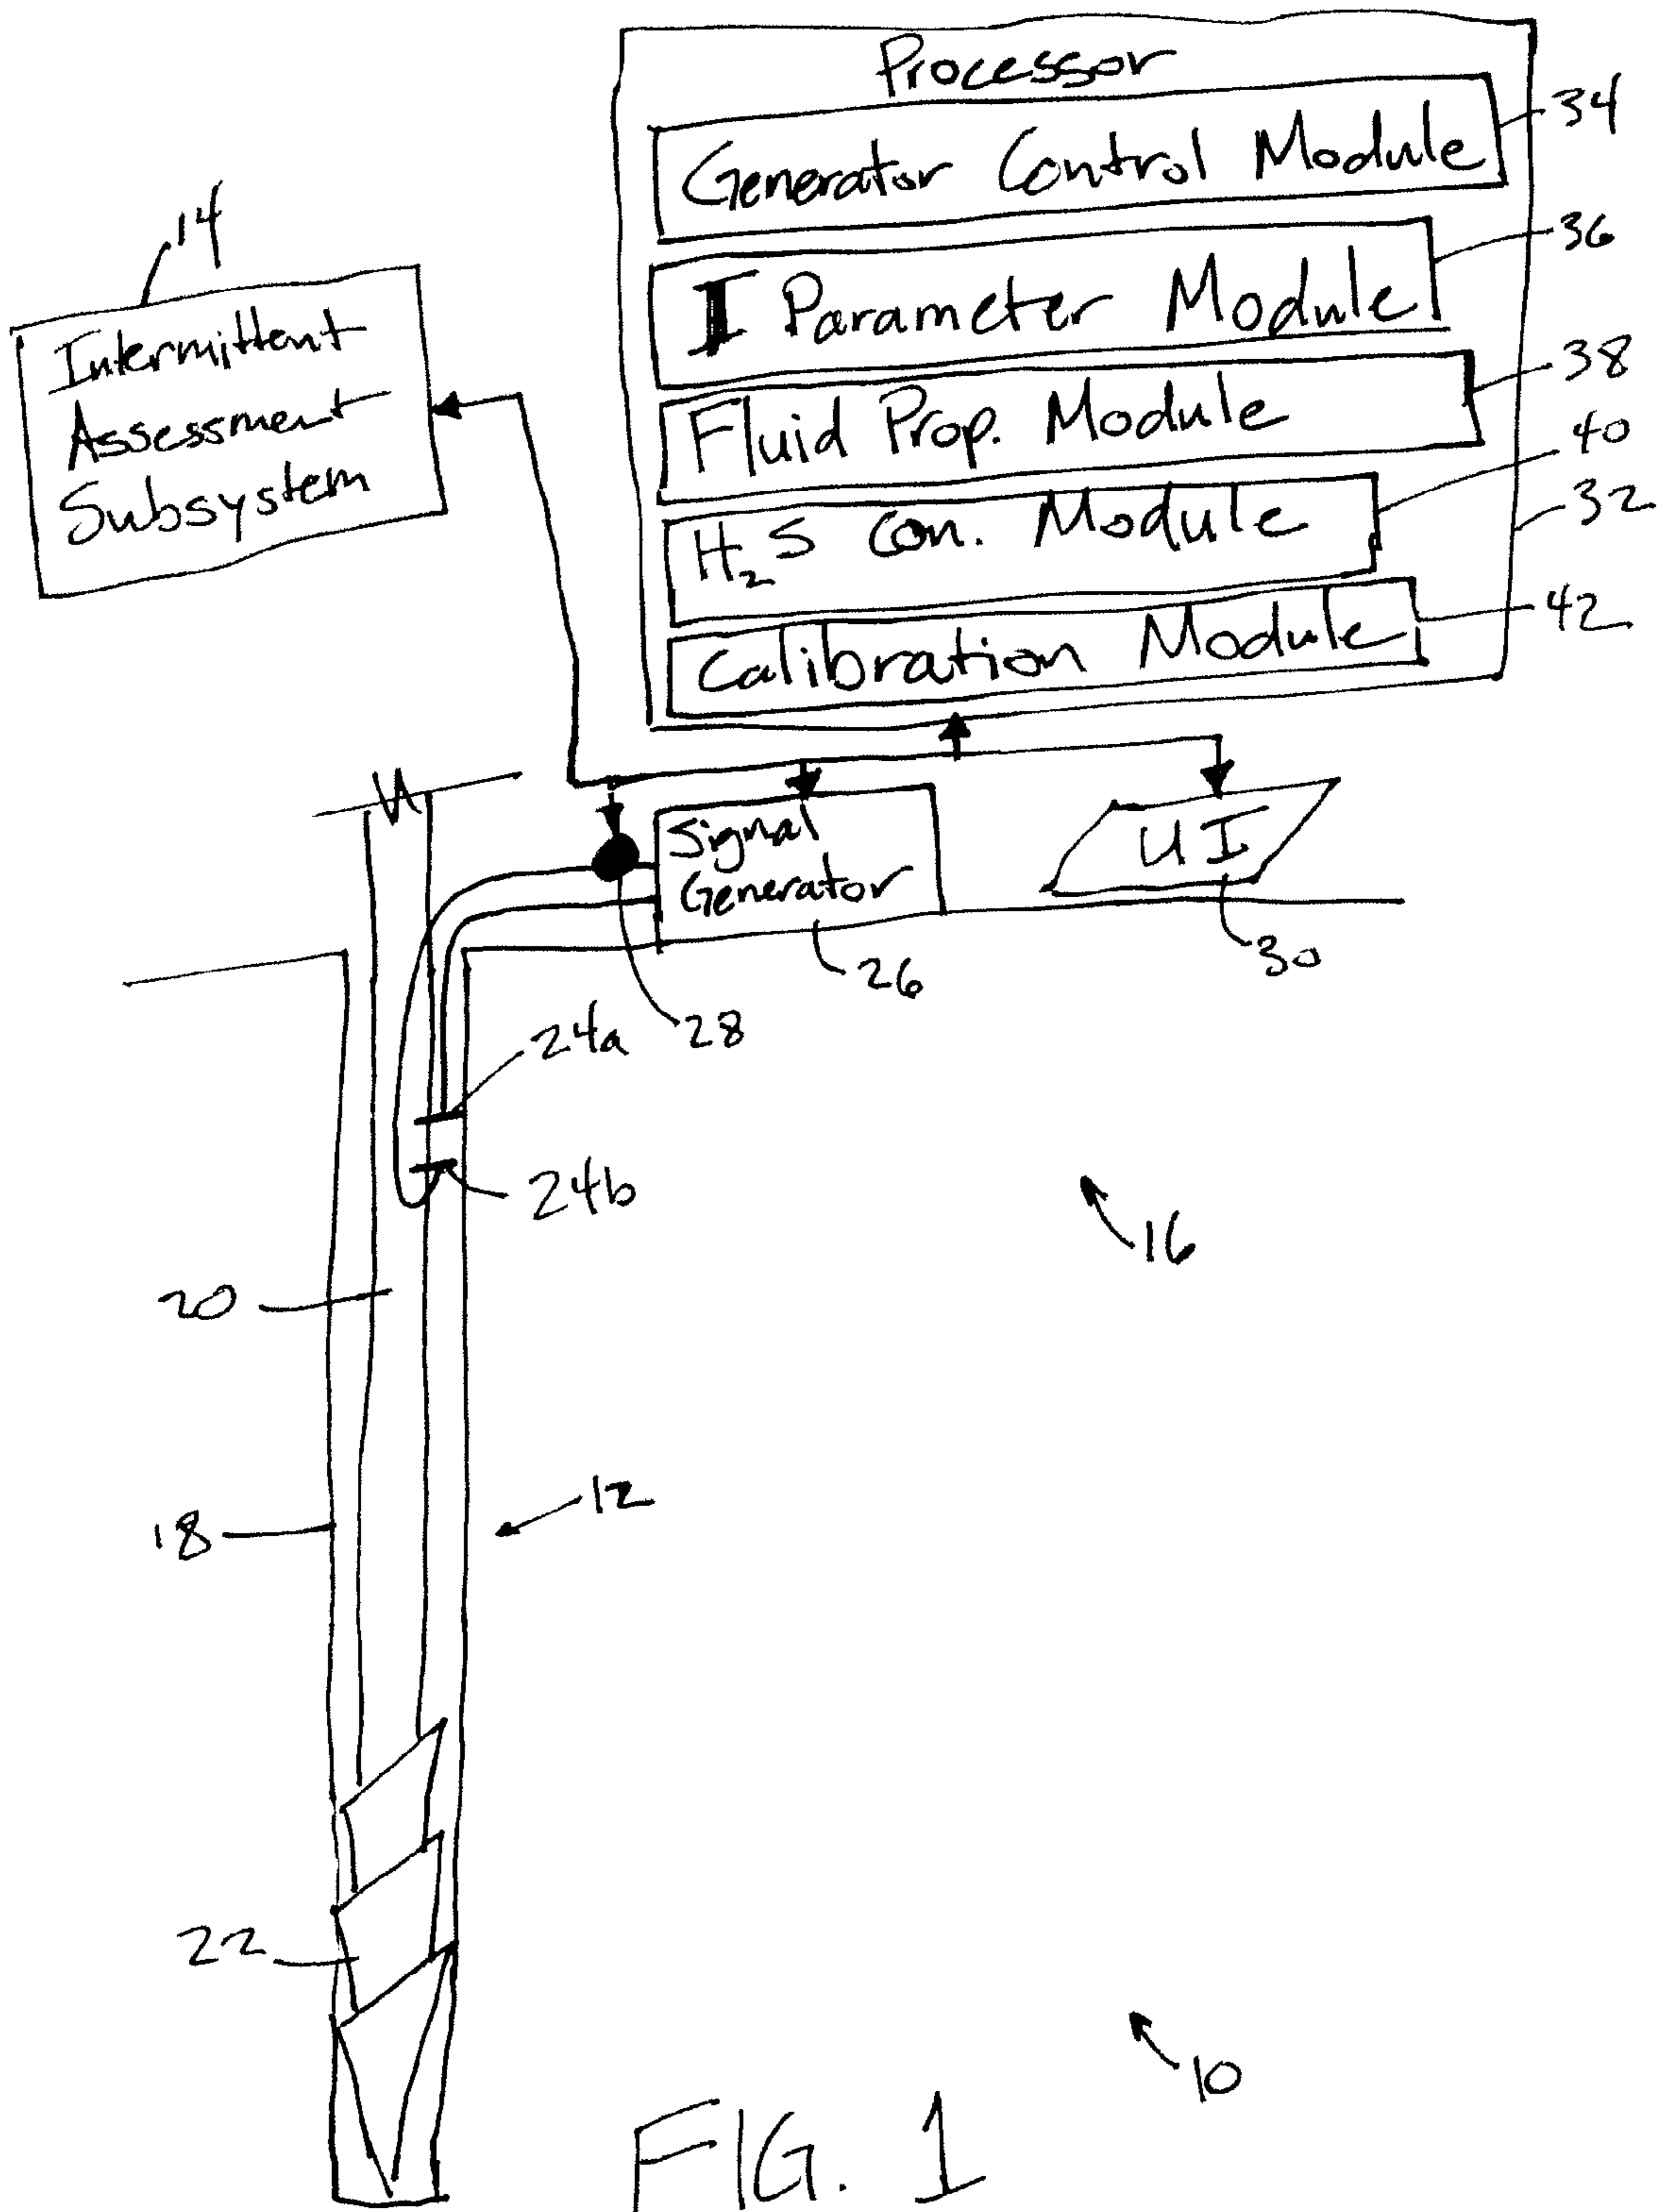 Processor
Generator Control Module
34
I Parameter Module
36
Fluid Prop. Module
38
H₂S Con. Module
40
32
Calibration Module
42
14
Intermittent
Assessment
Subsystem
Signal
Generator
26
UI
30
28
24a
24b
16
20
12
18
22
10
FIG. 1